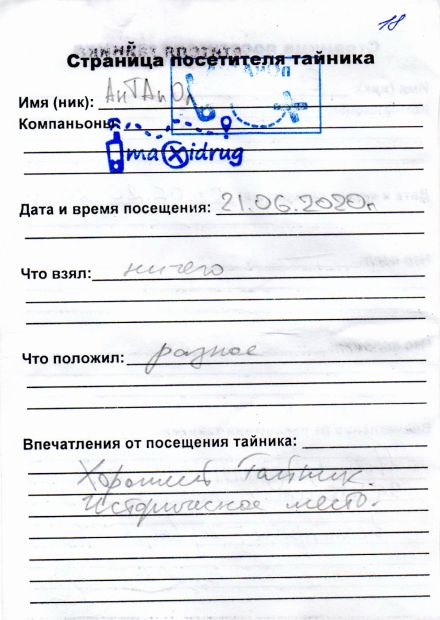 18
Страница посетителя тайника
Имя (ник): АнТАнОл
Компаньоны:
maxidrug
Дата и время посещения: 21.06.2020г
Что взял: ничего
Что положил: разное
Впечатления от посещения тайника:
Хороший Тайник.
Историческое место.